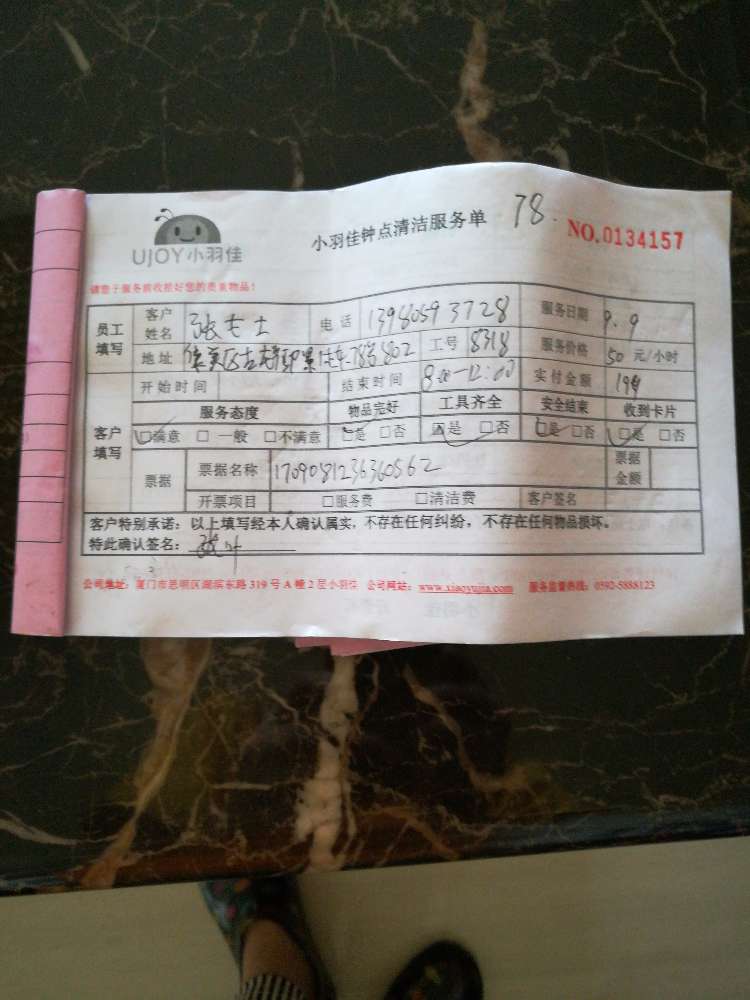 UJOY小羽佳
小羽佳钟点清洁服务单
78.
NO.0134157
请您于服务前收拾好您的贵重物品!
员工填写 客户姓名 张女士 电话 13980593728 服务日期 9.9
地址 802 工号 8318 服务价格 50元/小时
开始时间 结束时间 8:00-12:00 实付金额 199
客户填写 服务态度 物品完好 工具齐全 安全结束 收到卡片
□满意 □一般 □不满意 □是 □否 □是 □否 □是 □否 □是 □否
票据 票据名称 1709081236360562 票据金额
开票项目 □服务费 □清洁费 客户签名
客户特别承诺:以上填写经本人确认属实,不存在任何纠纷,不存在任何物品损坏。
特此确认签名:
公司地址:厦门市思明区湖滨东路319号A幢2层小羽佳 公司网站:www.xiaoyujia.com 服务监督热线:0592-5888123